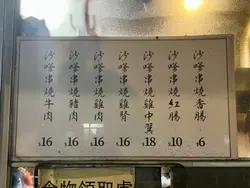 沙嗲串燒香腸
$6
沙嗲串燒紅腸
$10
沙嗲串燒雞中翼
$18
沙嗲串燒雞腎
$16
沙嗲串燒雞肉
$16
沙嗲串燒豬肉
$16
沙嗲串燒牛肉
$16
食物領取處